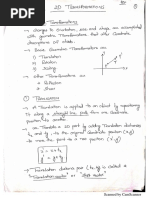 2D TRANSFORMATIONS
Transformations
→ Changes in Orientation, Size and shape are accomplished
with geometric Transformations that alter Coordinate
descriptions of objects.
→ Basic Geometric Transformations are
1) Translation
2) Rotation
3) Scaling
→ Other Transformations are
1) Reflection
2) Shear
1) Translation
→ A Translation is applied to an object by repositioning
it along a straight line path from one coordinate
position to another.
→ We Translate a 2D point by adding Translation distances
tx and ty, to the original coordinate position (x,y)
to move the point to a new position (x',y')
x' = x + tx
y' = y + ty
→ Translation distance pair (tx,ty) is called
"Translation vector" or "Shift vector".
Scanned by CamScanner